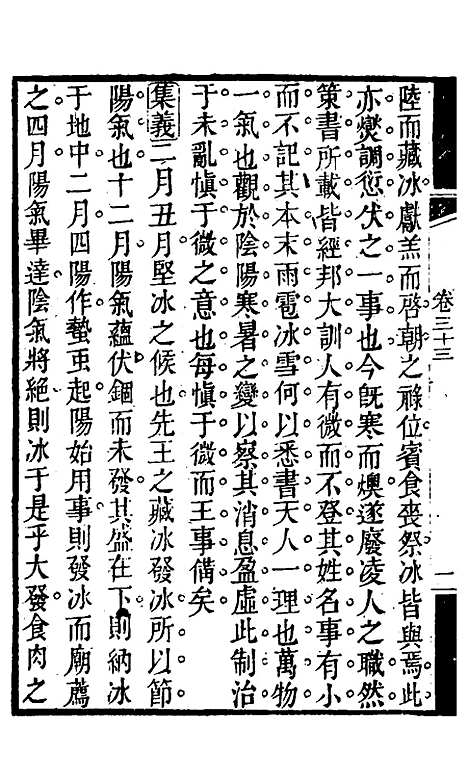 陸而藏冰獻羔而啓朝之祿位賓食喪祭冰皆與焉此
亦爕調愆伏之一事也今旣寒而燠遂廢凌人之職然
策書所載皆經邦大訓人有微而不登其姓名事有小
而不記其本末雨雹冰雪何以悉書天人一理也萬物
一氣也觀於陰陽寒暑之變以察其消息盈虛此制治
于未亂愼于微之意也每愼于微而王事備矣
集義二月丑月堅冰之候也先王之藏冰發冰所以節
陽氣也十二月陽氣蘊伏錮而未發其盛在下則納冰
于地中二月四陽作蟄虫起陽始用事則發冰而廟薦
之四月陽氣畢達陰氣將絕則冰于是乎大發食肉之
卷三十三
一